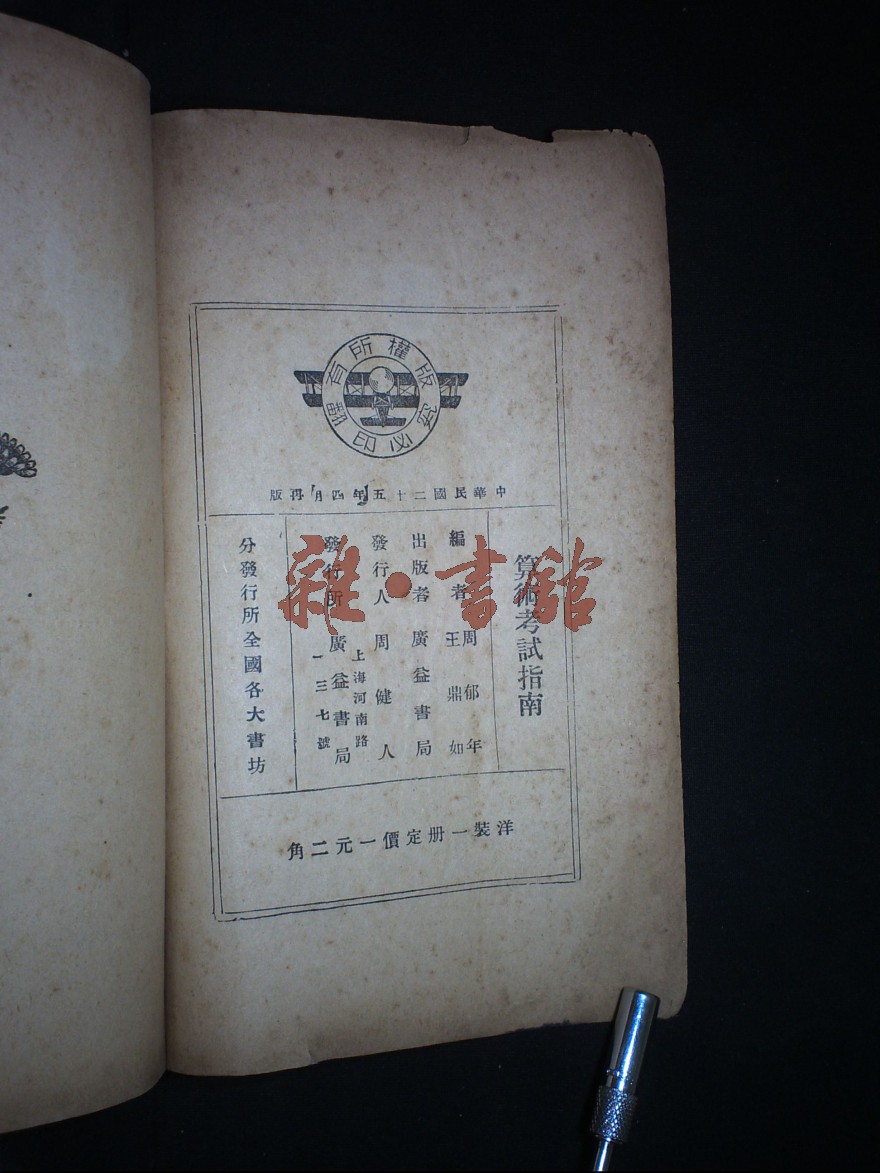 版權所有
翻印必究
中華民國二十五年四月再版
算術考試指南
編者 周郁年
王鼎如
出版者 廣益書局
發行人 周健人
上海河南路
發行所 廣益書局
一三七號
分發行所全國各大書坊
洋裝一册定價一元二角
雜·書館